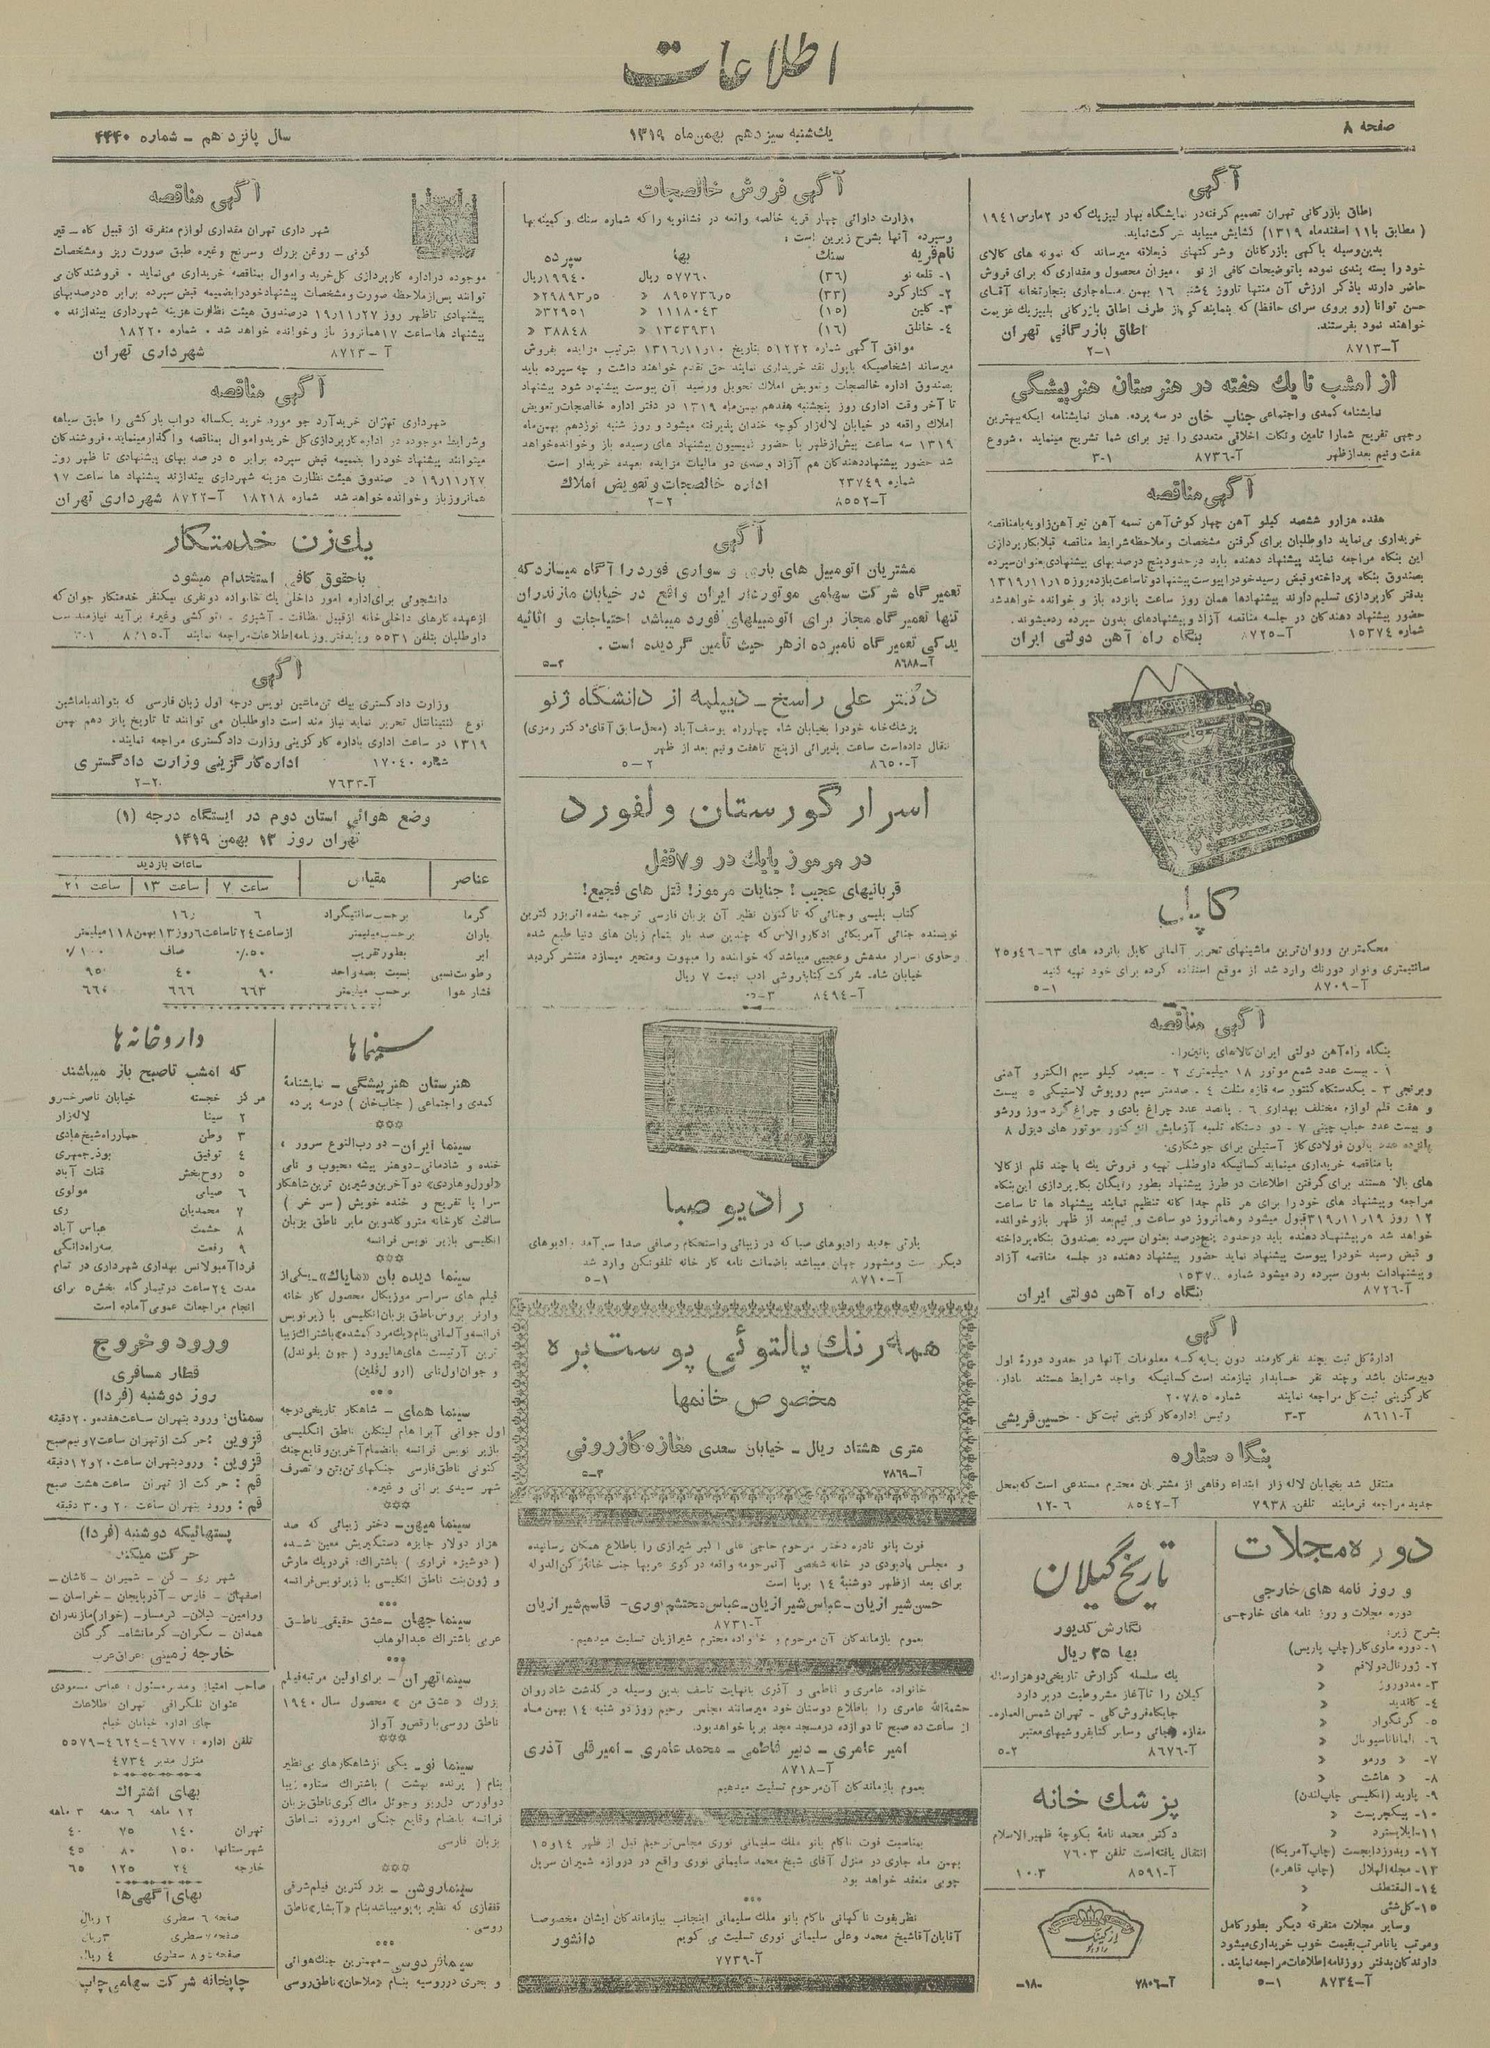 اطلاعات
صفحه ۸
یکشنبه سیزدهم بهمن ماه ۱۳۱۹
سال پانزدهم - شماره ۴۴۴۰
آگهی
اطاق بازرگانی تهران تصمیم گرفته در نمایشگاه بهار لیپزیک که در ۲ مارس ۱۹۴۱
(مطابق با ۱۱ اسفندماه ۱۳۱۹) گشایش مییابد شرکت نماید.
بدین وسیله باگهی بازرگانان وشرکتهای ذیعلاقه میرساند که نمونه های کالای
خود را بسته بندی نموده باتوضیحات کافی از نوع، میزان محصول و مقداری که برای فروش
حاضر دارند باذکر ارزش آن منتها تاروز ۴شنبه ۱۶ بهمن ماه جاری بتجارتخانه آقای
حسن توانا (رو بروی سرای حافظ) که بنمایندگی از طرف اطاق بازرگانی بلیپزیک عزیمت
خواهند نمود بفرستند.
اطاق بازرگانی تهران
آ-۸۷۱۳ ۲-۱
از امشب تا یک هفته در هنرستان هنرپیشگی
نمایشنامه کمدی واجتماعی جناب خان در سه پرده. همان نمایشنامه ایکه بهترین
وجهی تفریح شمارا تامین ونکات اخلاقی متعددی را نیز برای شما تشریح مینماید. شروع
هفت ونیم بعدازظهر آ-۸۷۳۶ ۳-۱
آگهی مناقصه
هفده هزار و ششصد کیلو آهن چهار گوش آهن تسمه آهن تیر آهن زاویه بامناقصه
خریداری می نماید داوطلبان برای گرفتن مشخصات وملاحظه شرایط مناقصه قبلا بکارپردازی
این بنگاه مراجعه نمایند پیشنهاد دهنده باید درحدود پنج درصد بهای پیشنهادی بعنوان سپرده
بصندوق بنگاه پرداخته وقبض رسید خودرا پیوست پیشنهاد تا ساعت یازده روز ۱۵ر۱۱ر۱۳۱۹
بدفتر کارپردازی تسلیم دارند پیشنهادها همان روز ساعت پانزده باز و خوانده خواهد شد
حضور پیشنهاد دهندگان در جلسه مناقصه آزاد و پیشنهادهای بدون سپرده رد میشوند.
شماره ۱۵۳۷۴ آ-۸۷۲۵ بنگاه راه آهن دولتی ایران
کاپل
محکمترین وروان ترین ماشینهای تحریر آلمانی کاپل بانورده های ۶۳-۴۶ و ۲۵
سانتیمتری ونوار دورنگ وارد شد از موقع استفاده کرده برای خود تهیه کنید
آ-۸۷۰۹ ۵-۱
آگهی مناقصه
بنگاه راه آهن دولتی ایران کالاهای پائین را.
۱ - بیست عدد شمع موتور ۱۸ میلیمتری ۲ - سیصد کیلو سیم الکترو آهنی
وبرنجی ۳ - یکدستگاه کنتور سه فازه مثلث ۴ - صدمتر سیم روپوش لاستیکی ۵ بیست
و هفت قلم لوازم مختلف بهداری ۶. پانصد عدد چراغ بادی و چراغ گرد سوز ورشو
و بیست عدد حباب چینی ۷ - دو دستگاه تلمبه آزمایش انژکتور موتور های دیزل ۸
پانزده عدد بالون فولادی گاز آستیلن برای جوشکاری.
با مناقصه خریداری مینماید کسانیکه داوطلب تهیه و فروش یک یا چند قلم از کالا
های بالا هستند برای گرفتن اطلاعات در طرز پیشنهاد بطور رایگان بکارپردازی این بنگاه
مراجعه وپیشنهاد های خود را برای هر قلم جدا گانه تنظیم نمایند پیشنهاد ها تا ساعت
۱۲ روز ۱۹ر۱۱ر۳۱۹ قبول میشود وهمانروز دو ساعت و نیم بعد از ظهر باز و خوانده
خواهد شد هر پیشنهاد دهنده باید درحدود پنج درصد بعنوان سپرده بصندوق بنگاه پرداخته
و قبض رسید خودرا پیوست پیشنهاد نماید حضور پیشنهاد دهنده در جلسه مناقصه آزاد
و پیشنهادات بدون سپرده رد میشود
آ-۸۷۲۶ بنگاه راه آهن دولتی ایران
آگهی
اداره کل ثبت بچند نفر کارمند دون پایه که معلومات آنها در حدود دوره اول
دبیرستان باشد وچند نفر حسابدار نیازمند است کسانیکه واجد شرایط هستند باداره
کارگزینی ثبت کل مراجعه نمایند شماره ۲۰۷۸۵
آ-۸۶۱۱ ۳-۳ رئیس اداره کارگزینی ثبت کل - حسین قریشی
بنگاه ستاره
منتقل شد بخیابان لاله زار ابتداء رفاهی از مشتریان محترم مستدعی است که بمحل
جدید مراجعه فرمایند تلفن ۷۹۳۸ آ-۸۵۴۲ ۱۲-۶
دوره مجلات
و روز نامه های خارجی
دوره مجلات و روز نامه های خارجی
بشرح زیر:
۱- دوره ماری کلر (چاپ پاریس)
۲- ژورنال دولافم «
۳- مددوروز «
۴- کاندید «
۵- گرنگوار «
۶- «
۷- « ورمو «
۸- « هاشت «
۹- پارید (انگلیسی چاپ لندن)
۱۰- پیکچرپست «
۱۱- ایلایسترد «
۱۲- ریدرزدایجست (چاپ آمریکا)
۱۳- مجله الهلال (چاپ قاهره)
۱۴- المقتطف «
۱۵- کل شئی «
وسایر مجلات متفرقه دیگر بطور کامل
ومرتب یا نامرتب بقیمت خوب خریداری میشود
دارندگان بدفتر روزنامه اطلاعات مراجعه نمایند.
آ-۸۷۳۴ ۵-۱
تاریخ گیلان
نگارش کدیور
بها ۲۵ ریال
یک سلسله گزارش تاریخی دو هزار ساله
گیلان را تا آغاز مشروطیت دربر دارد
جایگاه فروش کلی - تهران شمس العماره-
مغازه وسایر کتابفروشیهای معتبر
آ-۸۶۷۶ ۵-۲
پزشک خانه
دکتر محمد نامۀ بکوچۀ ظهیرالاسلام
انتقال یافته است تلفن ۷۶۰۳
آ-۸۵۹۱ ۱۰-۳
آ-۲۸۰۶ -۱۸-
آگهی فروش خالصجات
وزارت دارائی چهار قریه خالصه واقعه در فشافویه را که شماره سنگ و کمینه بها
وسپرده آنها بشرح زیرین است:
نام قریه سنگ بها سپرده
۱- قلعه نو (۳۶) ۵۷۷۶۰ ریال ۱۹۹۴۰ ریال
۲- کنارگرد (۳۳) ۸۹۵۷۳۶ر۵ « ۲۹۸۹۳ر۵ «
۳- کلین (۱۵) ۱۱۱۸۰۴۳ « ۳۲۹۵۱ «
۴- خانلق (۱۶) ۱۳۶۳۹۳۱ « ۳۸۸۴۸ «
موافق آگهی شماره ۵۱۲۲۲ بتاریخ ۱۰ر۱۱ر۱۳۱۶ بترتیب مزایده بفروش
میرساند اشخاصیکه باپول نقد خریداری نمایند حق تقدم خواهند داشت و چه سپرده باید
بصندوق اداره خالصجات وتعویض املاک تحویل ورسید آن پیوست پیشنهاد شود پیشنهاد
تا آخر وقت اداری روز پنجشنبه هفدهم بهمن ماه ۱۳۱۹ در دفتر اداره خالصجات وتعویض
املاک واقعه در خیابان لاله زار کوچه خندان پذیرفته میشود و روز شنبه نوزدهم بهمن ماه
۱۳۱۹ سه ساعت پیش از ظهر با حضور کمیسیون پیشنهاد های رسیده باز وخوانده خواهد
شد حضور پیشنهاد دهندگان هم آزاد وصدی دو مالیات مزایده بعهده خریدار است
شماره ۲۳۷۴۹ اداره خالصجات وتعویض املاک
آ-۸۵۵۲ ۲-۲
آگهی
مشتریان اتومبیل های باری و سواری فورد را آگاه میسازد که
تعمیرگاه شرکت سهامی موتورکار ایران واقع در خیابان مازندران
تنها تعمیرگاه مجاز برای اتومبیلهای فورد میباشد احتیاجات و اثاثیه
یدکی تعمیرگاه نامبرده ازهر حیث تأمین گردیده است.
آ-۸۶۸۸ ۵-۲
دکتر علی راسخ - دیپلمه از دانشگاه ژنو
پزشک خانه خودرا بخیابان شاه چهارراه یوسف آباد (محل سابق آقای دکتر رمزی)
انتقال داده است ساعت پذیرائی از پنج تاهفت و نیم بعد از ظهر
آ-۸۶۵۰ ۵-۲
اسرار گورستان ولفورد
در مرموز یا یک در و۷ قفل
قربانیهای عجیب! جنایات مرموز! قتل های فجیع!
کتاب پلیسی وجنائی که تاکنون نظیر آن بزبان فارسی ترجمه نشده اثر بزرگترین
نویسنده جنائی آمریکائی ادگار والاس که چندین صد بار بتمام زبان های دنیا طبع شده
وحاوی اسرار مدهش وعجیبی میباشد که خواننده را مبهوت ومتحیر میسازد منتشر گردید
خیابان شاه. شرکت کتابفروشی ادب قیمت ۷ ریال
آ-۸۴۹۴ ۵-۳
رادیو صبا
پارتی جدید رادیوهای صبا که در زیبائی واستحکام وصافی صدا سرآمد رادیوهای
دیگر است ومشهور جهان میباشد باضمانت نامه کارخانه تلفونکن وارد شد
آ-۸۷۱۰ ۵-۱
همه رنگ پالتوئی پوست بره
مخصوص خانمها
متری هشتاد ریال - خیابان سعدی مغازه کازرونی
آ-۲۸۶۹ ۵-۳
فوت بانو نادره دختر مرحوم حاجی علی اکبر شیرازی را باطلاع همگان رسانیده
و مجلس یادبودی در خانه شخصی آنمرحومه واقعه در کوی عربها جنب خانه رکن الدوله
برای بعد ازظهر دوشنبۀ ۱۴ برپا است
حسن شیرازیان - عباس شیرازیان - عباس محتشم نوری - قاسم شیرازیان
آ-۸۷۳۱
بعموم بازماندگان آن مرحوم و خانواده محترم شیرازیان تسلیت میدهیم.
خانواده عامری و فاطمی و آذری بانهایت تاسف بدین وسیله در گذشت شادروان
حشمةالله عامری را باطلاع دوستان خود میرسانند مجلس ترحیم روز دو شنبه ۱۴ بهمن ماه
از ساعت ده صبح تا دوازده درمسجد مجد برپا خواهد بود.
امیر عامری - دبیر فاطمی - محمد عامری - امیرقلی آذری
آ-۸۷۱۸
بعموم بازماندگان آن مرحوم تسلیت میدهیم
بمناسبت فوت ناکام بانو ملک سلیمانی نوری مجلس ترحیم قبل از ظهر ۱۴ و ۱۵
بهمن ماه جاری در منزل آقای شیخ محمد سلیمانی نوری واقع در دروازه شمیران سرپل
چوبی منعقد خواهد بود
نظر بفوت ناگهانی ناکام بانو ملک سلیمانی اینجانب ببازماندگان ایشان مخصوصا
آقایان آقاشیخ محمد وعلی سلیمانی نوری تسلیت می گویم دانشور
آ-۷۷۳۹
آگهی مناقصه
شهرداری تهران مقداری لوازم متفرقه از قبیل کاه - قیر
گونی - روغن بزرک وسرنج وغیره طبق صورت ریز ومشخصات
موجوده دراداره کارپردازی کل خرید واموال بمناقصه خریداری می نماید. فروشندگان می
توانند پس از ملاحظه صورت ومشخصات پیشنهاد خودرا بضمیمه قبض سپرده برابر ۵ درصد بهای
پیشنهادی تاظهر روز ۲۷ر۱۱ر۱۹ درصندوق هیئت نظارت هزینه شهرداری بیندازند.
پیشنهاد ها ساعت ۱۷ همانروز باز وخوانده خواهد شد. شماره ۱۸۲۲۰
آ-۸۷۱۳ شهرداری تهران
آگهی مناقصه
شهرداری تهران خرید آرد جو مورد خرید یکساله دواب بارکشی را طبق سیاهه
وشرایط موجوده در اداره کارپردازی کل خرید واموال بمناقصه واگذار مینماید. فروشندگان
میتوانند پیشنهاد خود را بضمیمه قبض سپرده برابر ۵ درصد بهای پیشنهادی تا ظهر روز
۲۷ر۱۱ر۱۹ در صندوق هیئت نظارت هزینه شهرداری بیندازند پیشنهاد ها ساعت ۱۷
همانروز باز وخوانده خواهد شد شماره ۱۸۲۱۸ آ-۸۷۲۲ شهرداری تهران
یک زن خدمتکار
باحقوق کافی استخدام میشود
دانشجوئی برای اداره امور داخلی یک خانواده دونفری بیکنفر خدمتکار جوان که
ازعهده کارهای داخلی خانه ازقبیل نظافت - آشپزی - اتوکشی وغیره برآید نیازمند است
داوطلبان بتلفن ۵۵۳۱ ویا بدفتر روزنامه اطلاعات مراجعه نمایند
آگهی
وزارت دادگستری بیک تن ماشین نویس درجه اول زبان فارسی که بتواند باماشین
نوع کنتیننتال تحریر نماید نیازمند است داوطلبان می توانند تا تاریخ پانزدهم بهمن
۱۳۱۹ در ساعت اداری باداره کارگزینی وزارت دادگستری مراجعه نمایند.
شماره ۱۷۰۴۰ اداره کارگزینی وزارت دادگستری
آ-۷۶۳۳ ۲-۲
وضع هوائی استان دوم در ایستگاه درجه (۱)
تهران روز ۱۳ بهمن ۱۳۱۹
عناصر مقیاس ساعات بازدید
ساعت ۷ ساعت ۱۳ ساعت ۲۱
گرما برحسب سانتیگراد ۶ ۱۶ر
باران برحسب میلیمتر از ساعت ۲۴ تا ساعت ۶ روز ۱۳ بهمن ۱۱۸ میلیمتر
ابر بطور تقریب ۰/۵۰ صاف ۰/۱۰۰
رطوبت نسبی نسبت بصد واحد ۹۰ ۴۰ ۹۵
فشار هوا برحسب میلیمتر ۶۶۳ ۶۶۶ ۶۶۶
سینماها
هنرستان هنرپیشگی - نمایشنامۀ
کمدی واجتماعی (جناب خان) درسه پرده
سینما ایران - دو رب النوع سرور،
خنده و شادمانی - دو هنر پیشه محبوب و نامی
«لورل وهاردی» دو آخرین وشیرین ترین شاهکار
سرا پا تفریح و خنده خویش (سر خر)
ساخت کارخانه مترو گلدوین مایر ناطق بزبان
انگلیسی بازیر نویس فرانسه
سینما دیده بان «مایاک» - یکی از
فیلم های سراسر موزیکال محصول کار خانه
وارنر بروس ناطق بزبان انگلیسی با زیرنویس
فرانسه وآلمانی بنام «یک مرد گمشده» باشتراک زیبا
ترین آرتیست های هالیوود (جون بلوندل)
و جوان اول نامی (ارول فلین)
سینما همای - شاهکار تاریخی درجه
اول جوانی آبراهام لینکلن ناطق انگلیسی
بازیر نویس فرانسه بانضمام آخرین وقایع جنگ
کنونی ناطق فارسی جنگهای تن بتن و تصرف
شهر سیدی برانی و غیره.
سینما میهن - دختر زیبائی که صد
هزار دولار جایزه دستگیریش معین شده
(دوشیزه فراری) باشتراک: فردریک مارش
و ژون بنت ناطق انگلیسی با زیرنویس فرانسه
سینما جهان - عشق حقیقی ناطق
عربی باشتراک عبدالوهاب
سینما تهران - برای اولین مرتبه فیلم
بزرگ «عشق من» محصول سال ۱۹۴۰
ناطق روسی با رقص و آواز
سینما نو - یکی از شاهکارهای بی نظیر
بنام (پرنده بهشت) باشتراک ستاره زیبا
دولورس دل ریو و جوئل ماک کری ناطق بزبان
فرانسه بانضمام وقایع جنگی امروزه ناطق
بزبان فارسی
سینما روشن - بزرگترین فیلم شرقی
قفقازی که نظیر نه بوده ومیباشد بنام «آبشار» ناطق
روسی.
سینما فردوسی - مهمترین جنگ هوائی
و بحری در روسیه بنام «ملاحان» ناطق روسی
داروخانه ها
که امشب تاصبح باز میباشند
مرکز خجسته خیابان ناصرخسرو
۲ سینا لاله زار
۳ وطن چهارراه شیخ هادی
۴ توفیق بوذرجمهری
۵ روح بخش قنات آباد
۶ ضیائی مولوی
۷ محمدیان ری
۸ حشمت عباس آباد
۹ رفعت سه راه دانگی
فردا آمبولانس بهداری شهرداری در تمام
مدت ۲۴ ساعت در تیمارگاه بخش ۵ برای
انجام مراجعات عمومی آماده است
ورود و خروج
قطار مسافری
روز دوشنبه (فردا)
سمنان: ورود بتهران ساعت هفده و ۲۰ دقیقه
قزوین: حرکت از تهران ساعت ۷ و نیم صبح
قزوین: ورود بتهران ساعت ۲۰ و ۱۲ دقیقه
قم: حرکت از تهران ساعت هشت صبح
قم: ورود بتهران ساعت ۲۰ و ۳۰ دقیقه
پستهائیکه دوشنبه (فردا)
حرکت میکند
شهر ری - کن - شمیران - کاشان -
اصفهان - فارس - آذربایجان - خراسان -
ورامین - گیلان - گرمسار - (خوار) مازندران
همدان - کرمانشاه - گرگان
خارجه زمینی: عراق عرب
صاحب امتیاز ومدیر مسئول: عباس مسعودی
عنوان تلگرافی - تهران - اطلاعات
جای اداره خیابان خیام
تلفن اداره: ۴۶۷۷-۴۶۲۴-۵۵۷۹
منزل مدیر ۴۷۳۴
بهای اشتراک
۱۲ ماهه ۶ ماهه ۳ ماهه
تهران ۱۴۰ ۷۵ ۴۰
شهرستانها ۱۵۰ ۸۰ ۴۵
خارجه ۲۴ ۱۲۵ ۶۵
بهای آگهی ها
صفحه ۶ سطری ۲ ریال
صفحه ۷ سطری ۳ ریال
صفحه ۸ سطری ۴ ریال
چاپخانه شرکت سهامی چاپ